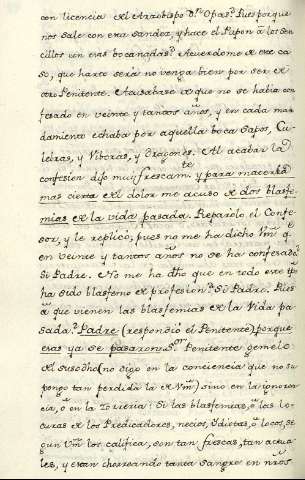 con licencia del Arzobispo Dn. Opas. Pues porque
nos sale con esa sandez, y hace el Papon a los sen
cillos con esas bocanadas? Acuerdome de este ca
so, que harto será no venga bien por ser de
otro Penitente. Acusabase de que no se habia con
fesado en veinte y tantos años, y en cada man
damiento echaba por aquella boca Sapos, Cu
lebras, y Viboras, y Dragones. Al acabar la
confesion dijo muy frescamte. y para
mas cierto el dolor me acuso de dos blasfe
mias de la vida pasada. Reparólo el Confe
sor, y le replicó, pues no me ha dicho Vm. q.
en veinte y tantos años no se ha confesado?
Si Padre. No me ha dho que en todo este tpo
ha sido blasfemo de profesion? Si Padre. Pues
a que vienen las blasfemias de la Vida pa
sada? Padre (respondió el Penitente) porque
esas ya se pasaron. Sor. Penitente gemelo
del susodho (no digo en la conciencia que no su
pongo tan perdida la de Vm) sino en la ignoran
cia, ó en la tontería: Si las blasfemias, ó las lo
curas de los Predicadores, necios, Ydiotas, ó locos, se
gun Vm. los califica, son tan frescas, tan actua
les, y estan chorreando tanta sangre en nros